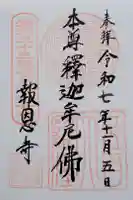 奉拝 令和七年十一月五日
本尊釋迦牟尼佛
報恩寺